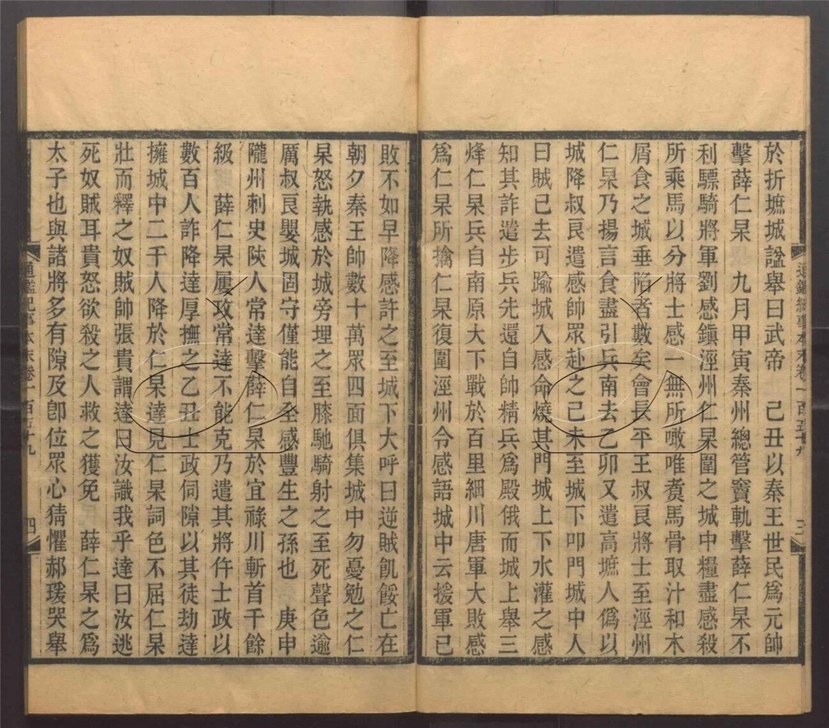 於折墌城諡舉曰武帝　己丑以秦王世民爲元帥
擊薛仁杲　九月甲寅秦州總管竇軌擊薛仁杲不
利驃騎將軍劉感鎭涇州仁杲圍之城中糧盡感殺
所乘馬以分將士感一無所噉唯煑馬骨取汁和木
屑食之城垂陷者數矣會長平王叔良將士至涇州
仁杲乃揚言食盡引兵南去乙卯又遣高墌人僞以
城降叔良遣感帥眾赴之己未至城下叩門城中人
曰賊已去可踰城入感命燒其門城上下水灌之感
知其詐遣步兵先還自帥精兵爲殿俄而城上舉三
烽仁杲兵自南原大下戰於百里細川唐軍大敗感
爲仁杲所擒仁杲復圍涇州令感語城中云援軍已
通鑑紀事本末卷一百五十九
三
敗不如早降感許之至城下大呼曰逆賊飢餒亡在
朝夕秦王帥數十萬眾四面俱集城中勿憂勉之仁
杲怒執感於城旁埋之至膝馳騎射之至死聲色逾
厲叔良嬰城固守僅能自全感豐生之孫也　庚申
隴州刺史陝人常達擊薛仁杲於宜祿川斬首千餘
級　薛仁杲屢攻常達不能克乃遣其將仵士政以
數百人詐降達厚撫之乙丑士政伺隙以其徒劫達
擁城中二千人降於仁杲達見仁杲詞色不屈仁杲
壯而釋之奴賊帥張貴謂達曰汝識我乎達曰汝逃
死奴賊耳貴怒欲殺之人救之獲免　薛仁杲之爲
太子也與諸將多有隙及卽位眾心猜懼郝瑗哭舉
通鑑紀事本末卷一百五十九
四